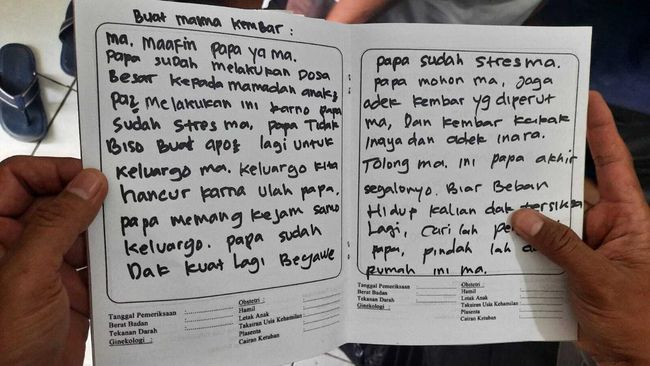 Buat mamma kembar :
ma. maafin papa ya ma.
Papa sudah melakukan Dosa
Besar kepada mamadan anak2
pa2 melakukan ini karno papa
sudah stres ma, papa Tidak
Biso Buat apo2 lagi untuk
keluargo ma. keluargo kita
hancur karna ulah papa.
papa memang kejam samo
keluargo. papa sudah
Dak kuat lagi Begawe
Tanggal Pemeriksaan :
Berat Badan :
Tekanan Darah :
Ginekologi :
Obstetri :
Hamil :
Letak Anak :
Taksiran Usia Kehamilan :
Plasenta :
Cairan Ketuban :
papa sudah stres ma.
papa mohon ma, Jaga
adek kembar yg diperut
ma, Dan kembar kakak
inaya dan adek inara.
Tolong ma. ini papa akhir
segalonyo. Biar Beban
Hidup kalian dak
Lagi, cari lah
papa, pindah lah
rumah ini ma.
Tanggal Pemeriksaan :
Berat Badan :
Tekanan Darah :
Ginekologi :
Obstetri :
Hamil :
Letak Anak :
Taksiran Usia Kehamilan :
Plasenta :
Cairan Ketuban :